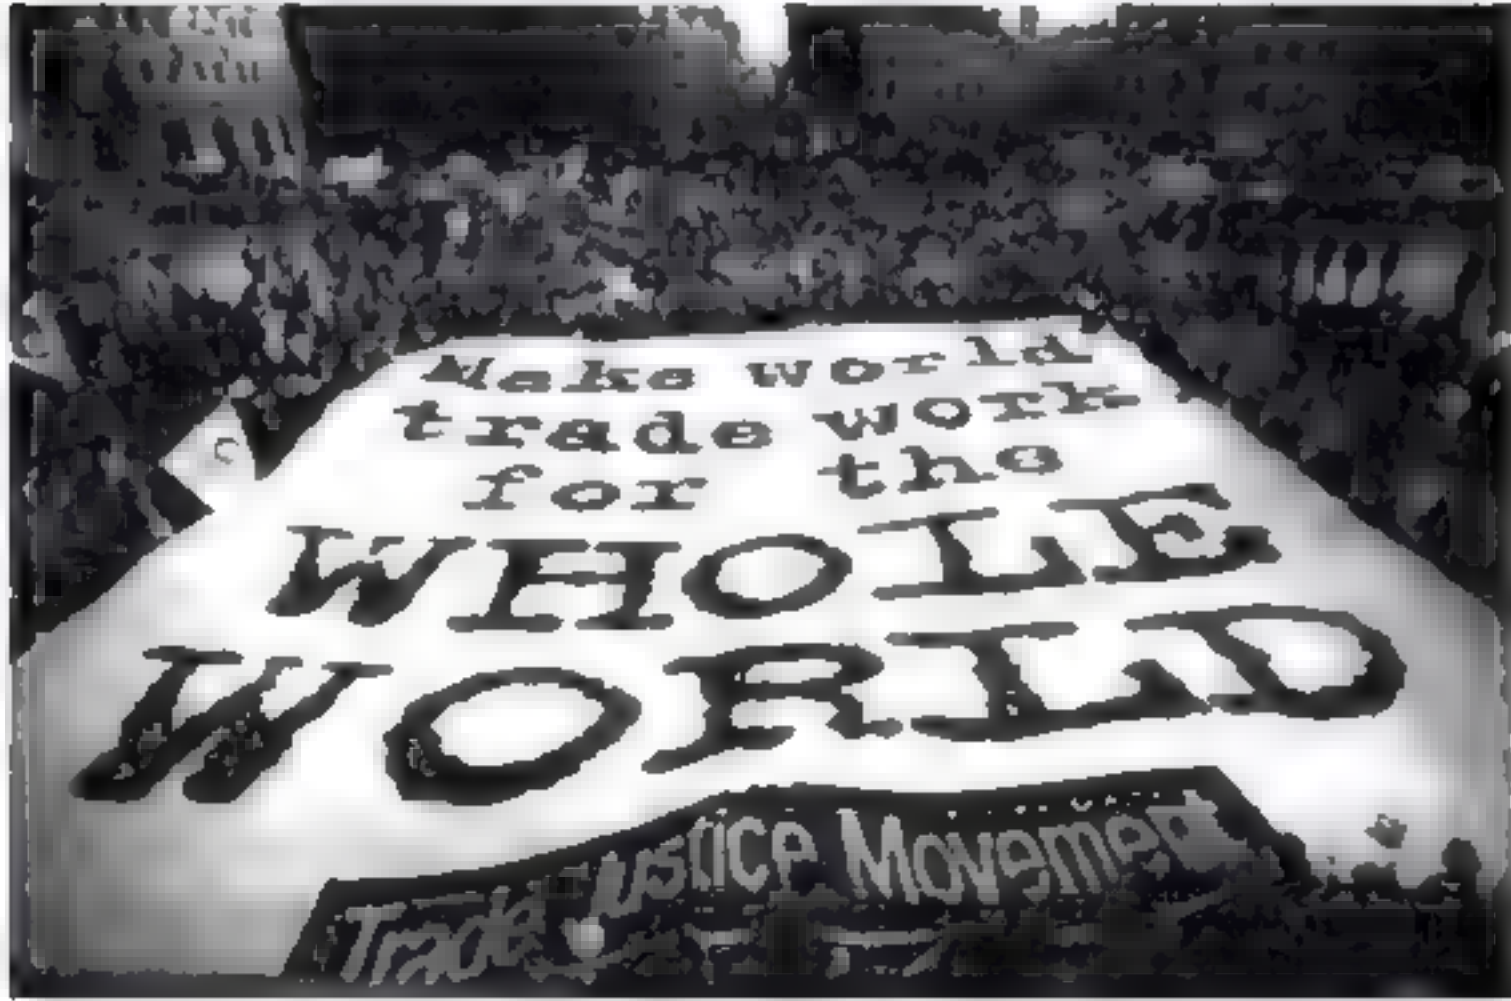 Make world
trade work
for the
WHOLE
WORLD
Trade Justice Movement